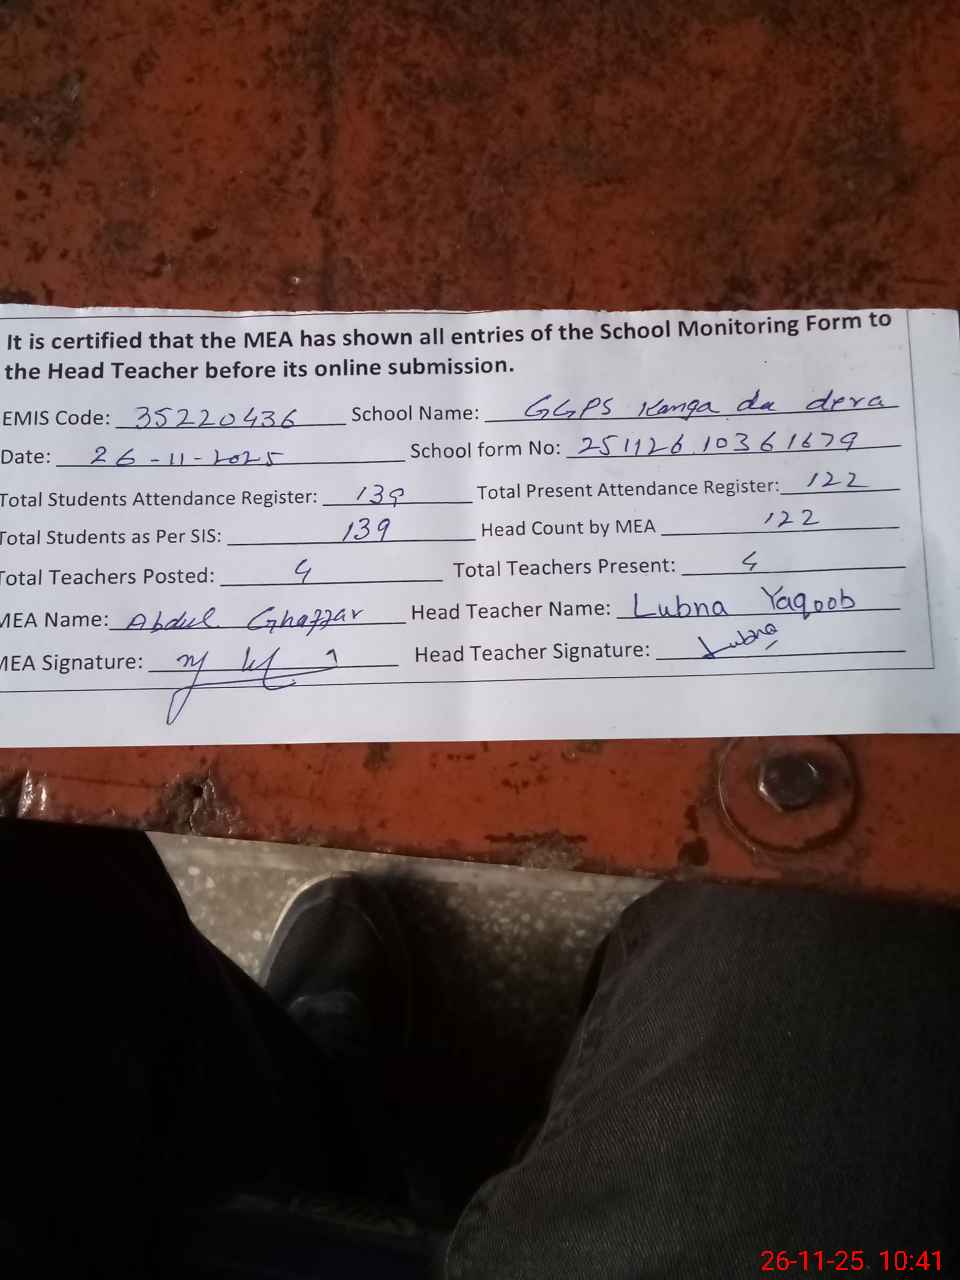 It is certified that the MEA has shown all entries of the School Monitoring Form to
the Head Teacher before its online submission.
EMIS Code: 35220436 School Name: GGPS Kanga da dera
Date: 26-11-2025 School form No: 251126 10361679
Total Students Attendance Register: 139 Total Present Attendance Register: 122
Total Students as Per SIS: 139 Head Count by MEA 122
Total Teachers Posted: 4 Total Teachers Present: 4
MEA Name: Abdul Ghaffar Head Teacher Name: Lubna Yaqoob
MEA Signature: Head Teacher Signature: Lubna
26-11-25 10:41